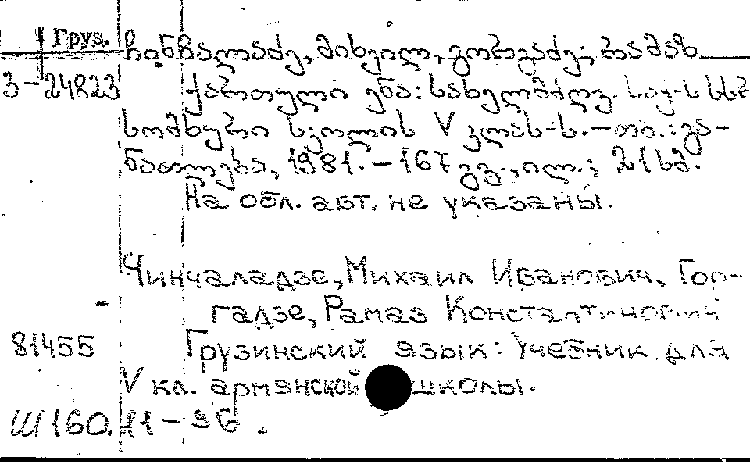 Груз.
3-24823
ჩინჩალაძე, მიხეილ, გორგაძე, რამაზ
ქართული ენა: სახელმძღვ. საქ-ს სსრ
სომხური სკოლის V კლას-ს.–თბ.: გა-
ნათლება, 1981.–167 გვ., ილ.; 21 სმ.
На обл. авт. не указаны.
Чинчаладзе, Михаил Иванович, Гор-
гадзе, Рамаз Константинович
81455 Грузинский язык: Учебник для
V кл. армянской школы.
Ш160.41-96.